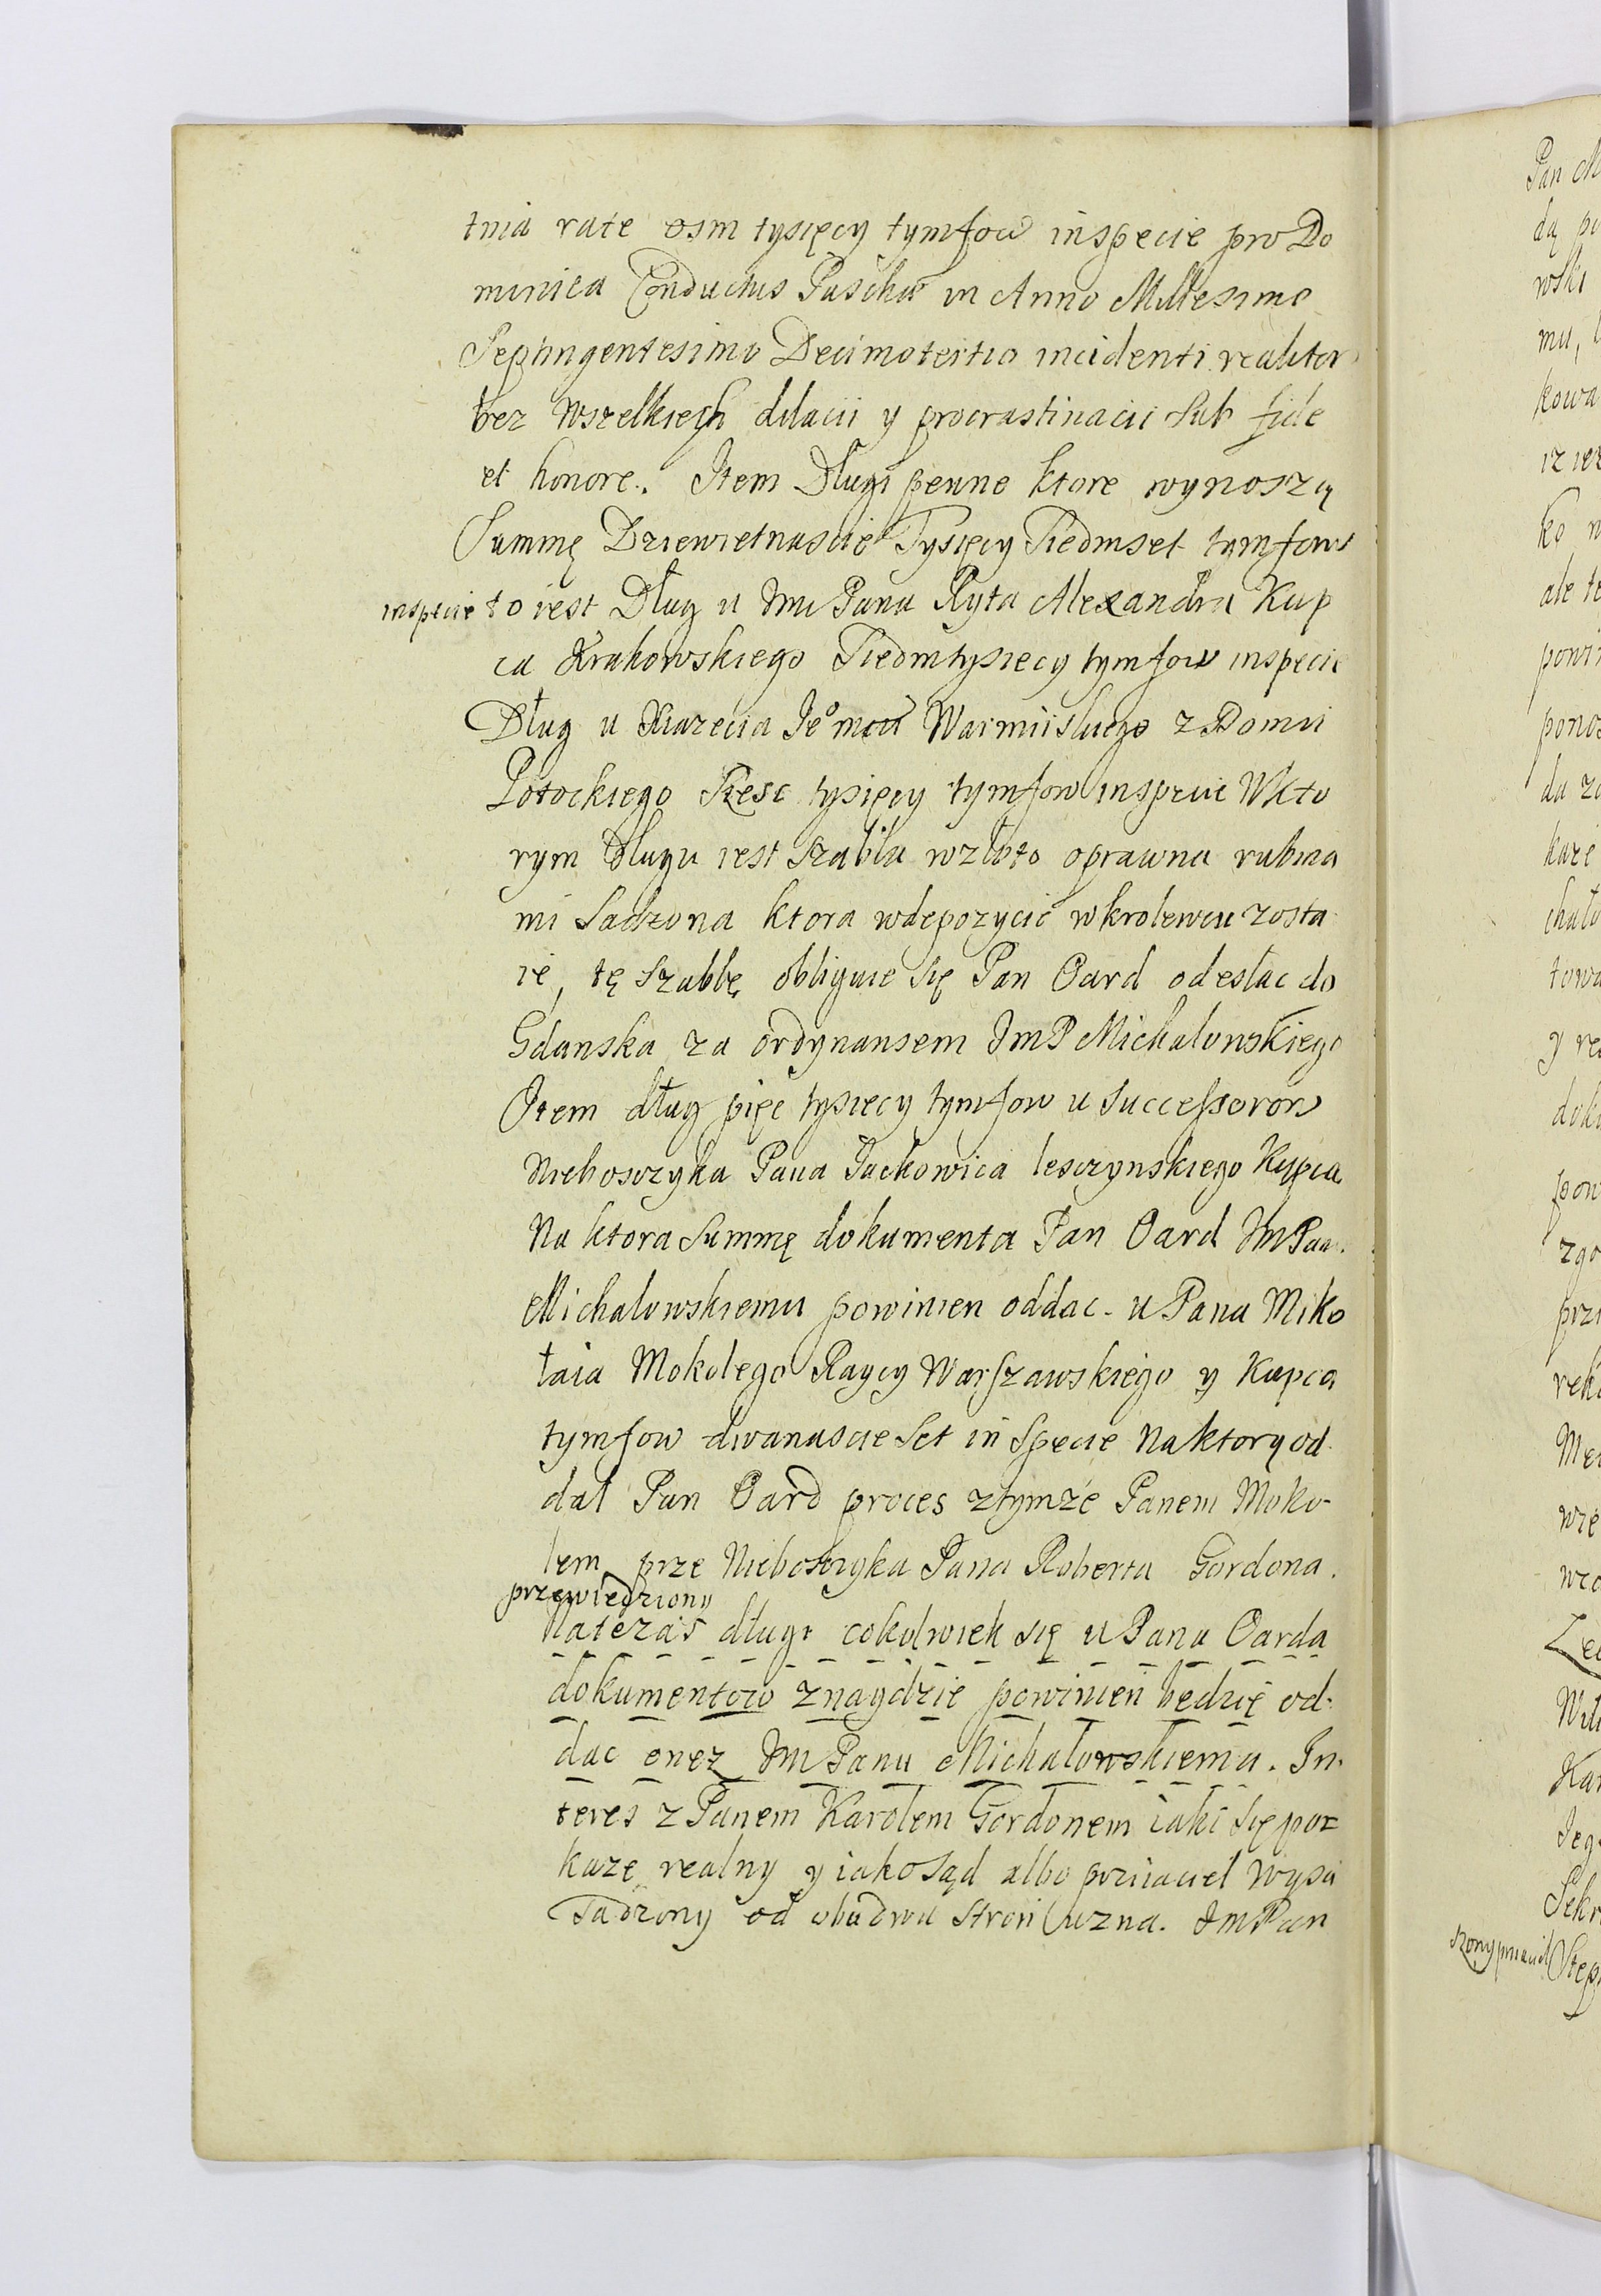 tnia rate osm tysięcy tymfow inspecie pro Do
minica Conductus Paschae in Anno Millesimo
Septingentesimo Decimotertio incidenti realiter
bez wszelkiech dilacii y procrastinacii Sub fide
et honore. Item Długi pewne ktore wynoszą
Summę Dziewietnascie Tysięcy Siedmset tymfow
inspecie to iest Dług u Im Pana Ryta Alexandra Kup
ca Krakowskiego Siedmtysiecy tymfow inspecie
Dług u Xiazecia Jeo mci Warmiiskiego z Domu
Potockiego Szesc tysięcy tymfow inspecie Wkto
rym Długu iest szabla wzłoto oprawna rubina
mi Sadzona ktora wdepozycie wkrolewcu zosta
ie, tę Szablę obliguie się Pan Oard odesłac do
Gdanska za ordynansem ImP Michałowskiego
Item dług pięc tysiecy tymfow u Successorow
Nieboszyka Pana Jackowica lesczynskiego Kupca
Na ktora Summę dokumenta Pan Oard Im Pan.
Michalowskiemu powinien oddac. u Pana Miko
łaia Mokolego Raycy Warszawskiego y Kupca
tymfow dwanascie Set in Specie Naktory od
dał Pan Oard proces ztymże Panem Moko-
lem prze Nieboszyka Pana Roberta Gordona.
przewiedziony
Nateżas długi cokolwiek się u Pana Oarda
dokumentow znaydzie powinien bedzie od:
dac onez Im Panu Michałowskiemu. In.
teres z Panem Karolem Gordonem iaki się po=
kaze realny y iako Sąd albo prziaciel Wysa
Sadzony od obudwu Stron uzna. Im Pan